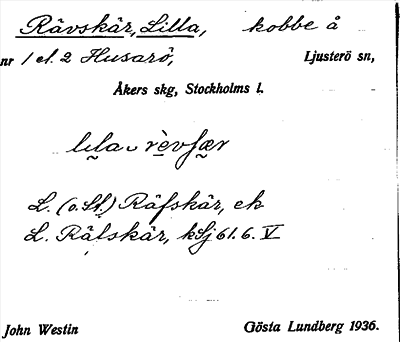 Rävskär, Lilla, kobbe å
nr 1 el. 2 Husarö, Ljusterö sn,
Åkers skg, Stockholms l.
lɩla ᴗ rèvʃær
L. (o. St.) Räfskär, ek
L. Räfskär, kSj 61.6. V
John Westin Gösta Lundberg 1936.